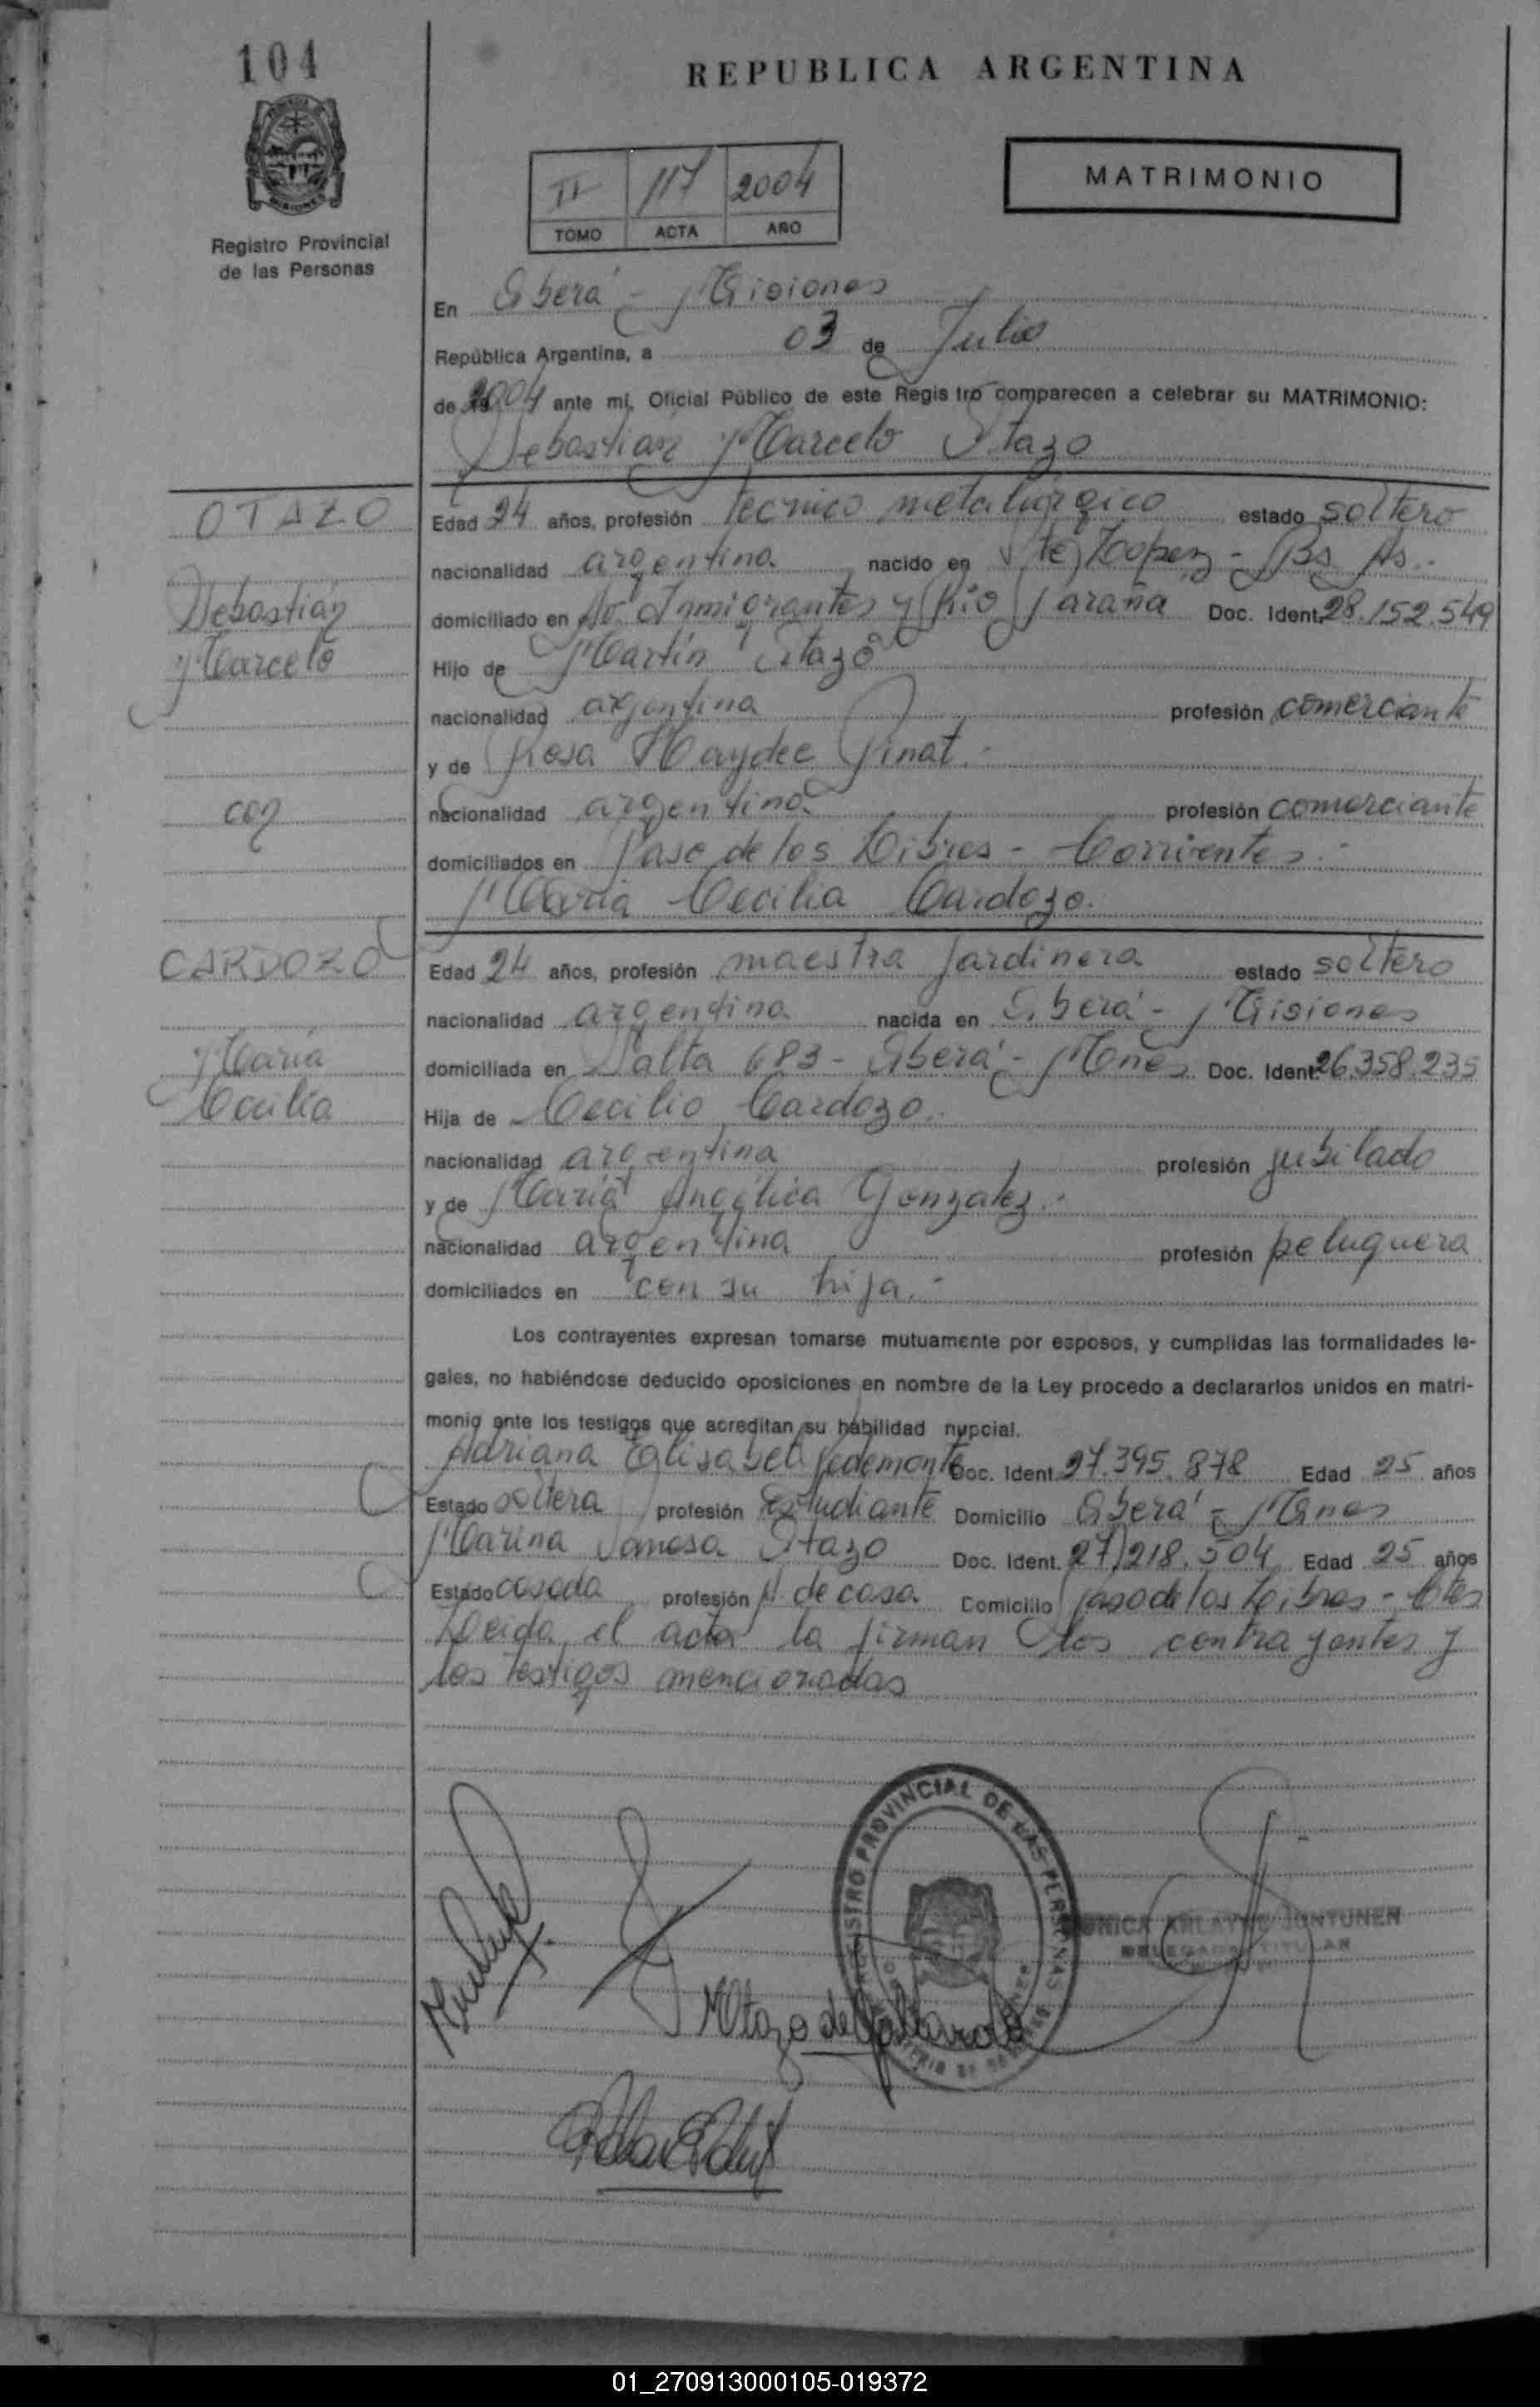 104
REPUBLICA ARGENTINA
MATRIMONIO
II 117 2004
TOMO ACTA AÑO
Registro Provincial
de las Personas
En Oberá - Misiones
República Argentina, a 03 de Julio
de 2004 ante mi, Oficial Público de este Registro comparecen a celebrar su MATRIMONIO:
Sebastian Marcelo Otazo
OTAZO
Sebastián
Marcelo
con
Edad 24 años, profesión tecnico metalúrgico estado soltero
nacionalidad argentina nacido en Vte Lopez - Bs As.-
domiciliado en Av. Inmigrantes y Rio Paraná Doc. Ident. 28.152.549
Hijo de Martín Otazo
nacionalidad argentina profesión comerciante
y de Rosa Haydee Pinat.-
nacionalidad argentina profesión comerciante
domiciliados en Paso de los Libres - Corrientes.-
María Cecilia Cardozo.
CARDOZO
María
Cecilia
Edad 24 años, profesión maestra jardinera estado soltero
nacionalidad argentina nacida en Oberá - Misiones
domiciliada en Salta 683 - Oberá - Mnes Doc. Ident. 26.358.235
Hija de Cecilio Cardozo.
nacionalidad argentina profesión jubilado
y de María Angélica Gonzalez.-
nacionalidad argentina profesión peluquera
domiciliados en con su hija.-
Los contrayentes expresan tomarse mutuamente por esposos, y cumplidas las formalidades le-
gales, no habiéndose deducido oposiciones en nombre de la Ley procedo a declararlos unidos en matri-
monio ante los testigos que acreditan su habilidad nupcial.
Adriana Elisabet Pedemonte Doc. Ident. 27.395.878 Edad 25 años
Estado soltera profesión Estudiante Domicilio Oberá - Mnes
Marina Vanesa Otazo Doc. Ident. 27.218.504 Edad 25 años
Estado casada profesión A. de casa Domicilio Paso de los Libres - Ctes
Leida el acta la firman los contrayentes y
los testigos mencionados
REGISTRO PROVINCIAL DE LAS PERSONAS
MOtazo de Gallardo
MONICA ARLAYNE JUNTUNEN
DELEGADA TITULAR
01_270913000105-019372